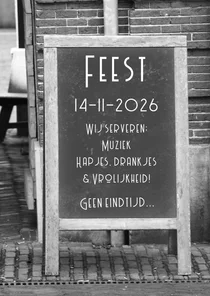 FEEST
14-11-2026
WIJ SERVEREN:
MUZIEK
HAPJES, DRANKJES
& VROLIJKHEID!
GEEN EINDTIJD...